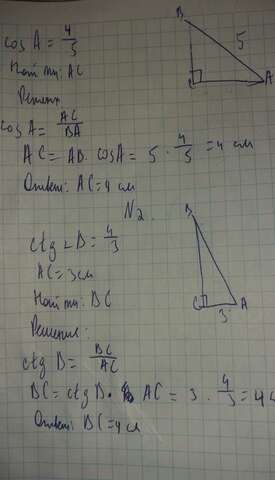 cos A = 4/5
Найти: AC
Решение
cos A = AC/BA
AC = AB · cos A = 5 · 4/5 = 4 см
Ответ: AC = 4 см
B
5
C
A
N2.
ctg ∠B = 4/3
AC = 3 см
Найти: BC
Решение:
ctg B = BC/AC
BC = ctg B · AC = 3 · 4/3 = 4 с
Ответ: BC = 4 см
B
C
A
3